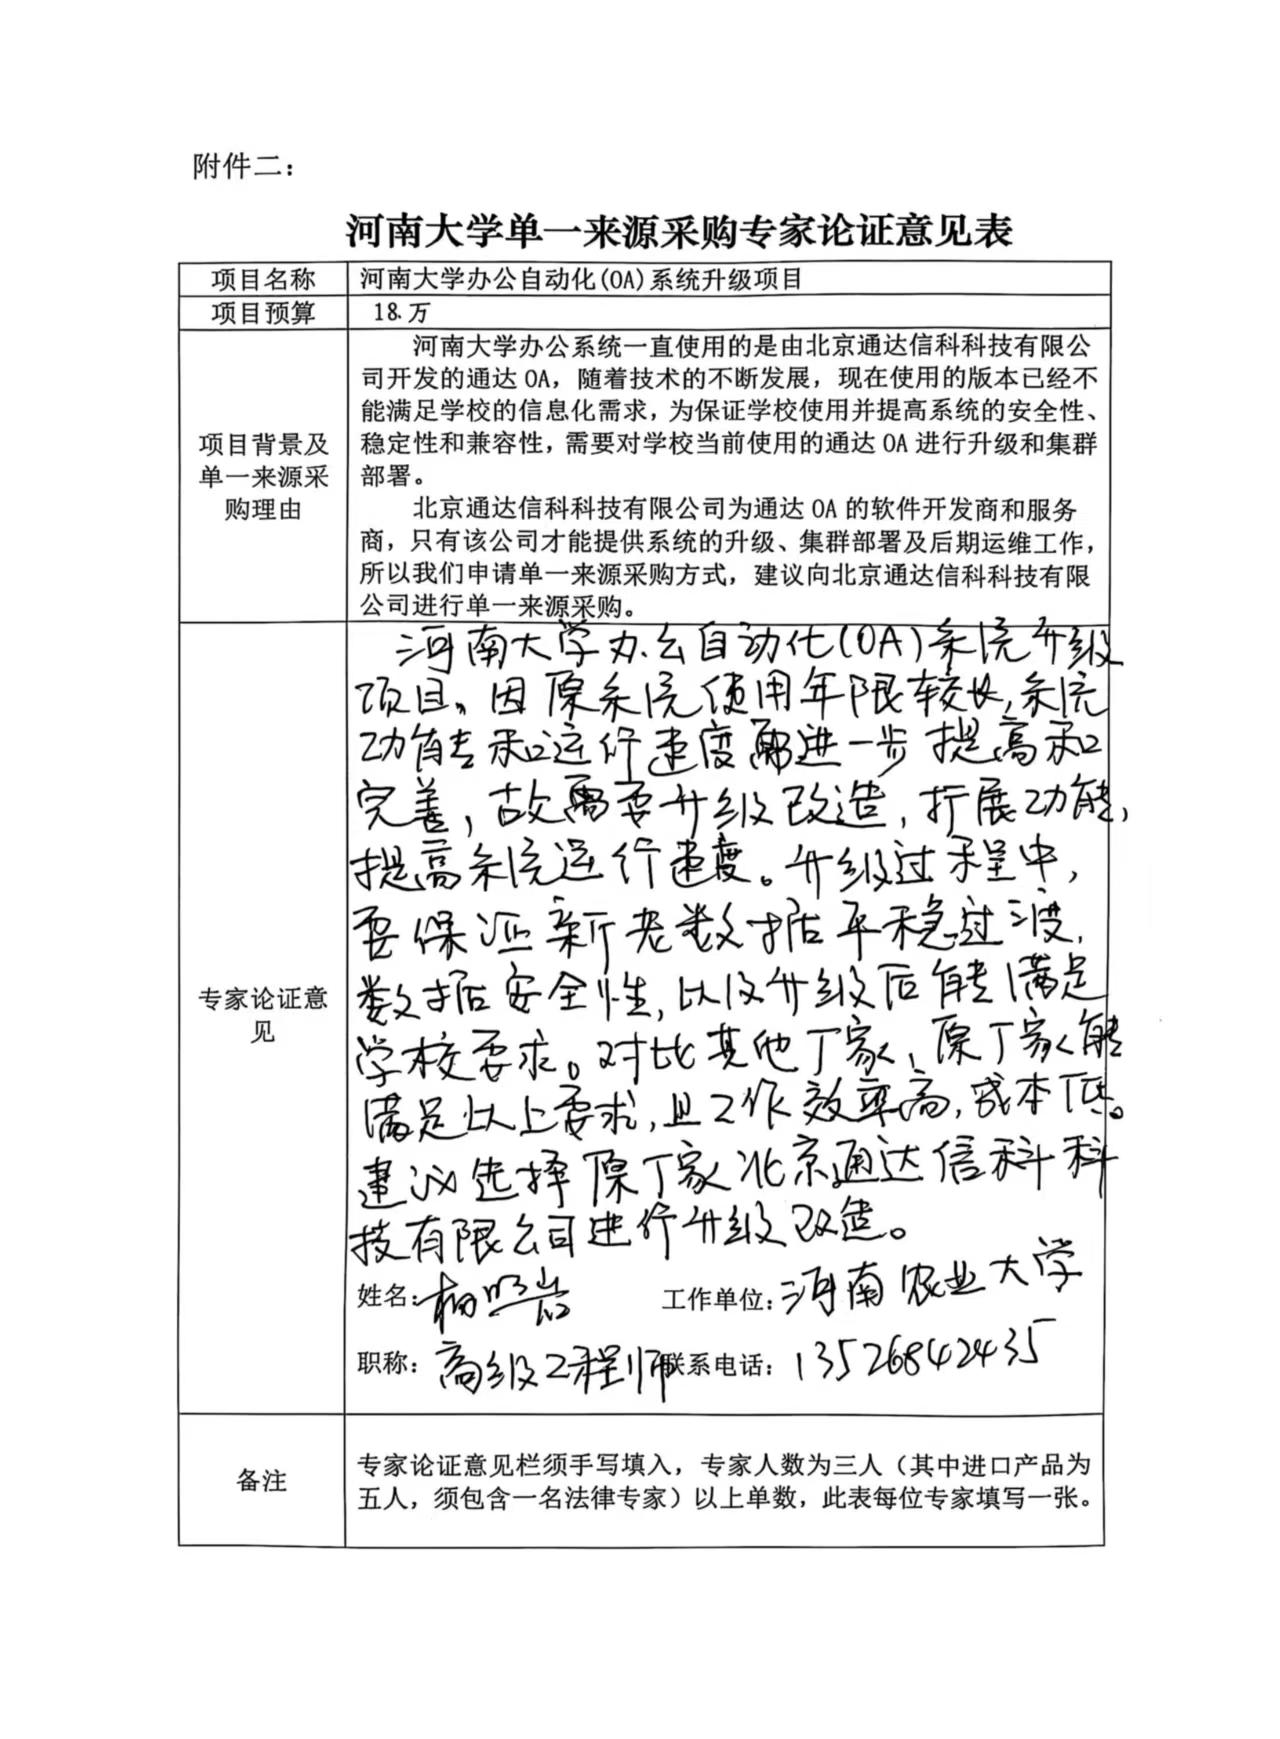 附件二：
河南大学单一来源采购专家论证意见表
项目名称 河南大学办公自动化(OA)系统升级项目
项目预算 18.万
项目背景及单一来源采购理由
河南大学办公系统一直使用的是由北京通达信科科技有限公
司开发的通达 OA，随着技术的不断发展，现在使用的版本已经不
能满足学校的信息化需求，为保证学校使用并提高系统的安全性、
稳定性和兼容性，需要对学校当前使用的通达 OA 进行升级和集群
部署。
北京通达信科科技有限公司为通达 OA 的软件开发商和服务
商，只有该公司才能提供系统的升级、集群部署及后期运维工作，
所以我们申请单一来源采购方式，建议向北京通达信科科技有限
公司进行单一来源采购。
专家论证意见
河南大学办公自动化(OA)系统升级
项目。因原系统使用年限较长，系统
功能和运行速度需进一步提高和
完善，故需要升级改造，扩展功能，
提高系统运行速度。升级过程中，
要保证新老数据平稳过渡，
数据安全性，以及升级后能满足
学校要求。对比其他厂家，原厂家能
满足以上要求，且工作效率高，成本低。
建议选择原厂家北京通达信科科
技有限公司进行升级改造。
姓名： 工作单位：河南农业大学
职称：高级工程师 联系电话：13526842435
备注
专家论证意见栏须手写填入，专家人数为三人（其中进口产品为
五人，须包含一名法律专家）以上单数，此表每位专家填写一张。